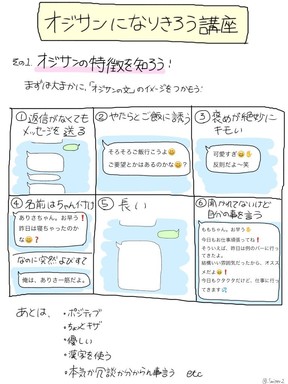 オジサンになりきろう講座
その1 オジサンの特徴を知ろう!
まずは大まかに、「オジサンの文」のイメージをつかもう
①返信がなくても
メッセージを送る
②やたらとご飯に誘う
そろそろご飯行こうよ😄
ご要望とかはあるのかな😄❓
③褒めが絶妙に
キモい
可愛すぎ😄✋
反則だよ〜笑
④名前はちゃん付け
ありさちゃん。お早う❗
昨日は寝ちゃったの
かな😄❓
なのに突然よびすて
俺は、ありさ一筋だよ。
⑤長い
⑥聞かれてないけど
自分の事を言う
ももちゃん。お早う❗
今日もお仕事頑張ってね❗
そういえば、昨日は例のバーに行っ
てきたよ。
結構いい雰囲気だったから、オスス
メだよ😄❗
今日もクタクタだけど、仕事に行っ
てきます💦
あとは、
・ポジティブ
・ちょっとキザ
・優しい
・漢字を使う
・本気か冗談か分からん事言う etc